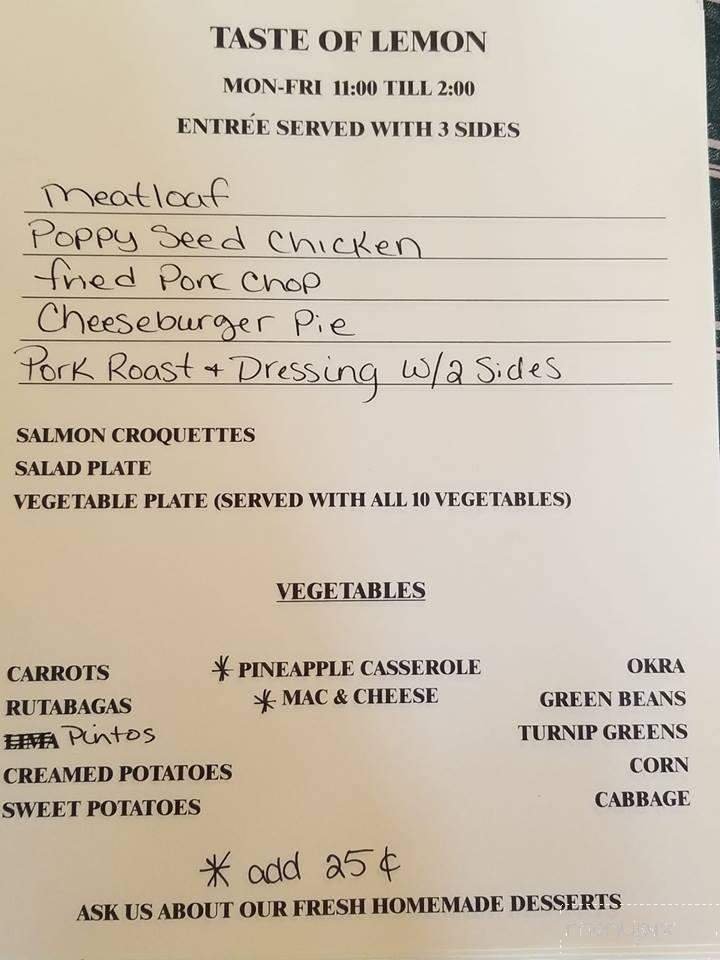 TASTE OF LEMON
MON-FRI 11:00 TILL 2:00
ENTRÉE SERVED WITH 3 SIDES
Meatloaf
Poppy Seed Chicken
fried Pork Chop
Cheeseburger Pie
Pork Roast + Dressing W/2 Sides
SALMON CROQUETTES
SALAD PLATE
VEGETABLE PLATE (SERVED WITH ALL 10 VEGETABLES)
VEGETABLES
CARROTS * PINEAPPLE CASSEROLE OKRA
RUTABAGAS * MAC & CHEESE GREEN BEANS
LIMA Pintos TURNIP GREENS
CREAMED POTATOES CORN
SWEET POTATOES CABBAGE
* add 25¢
ASK US ABOUT OUR FRESH HOMEMADE DESSERTS